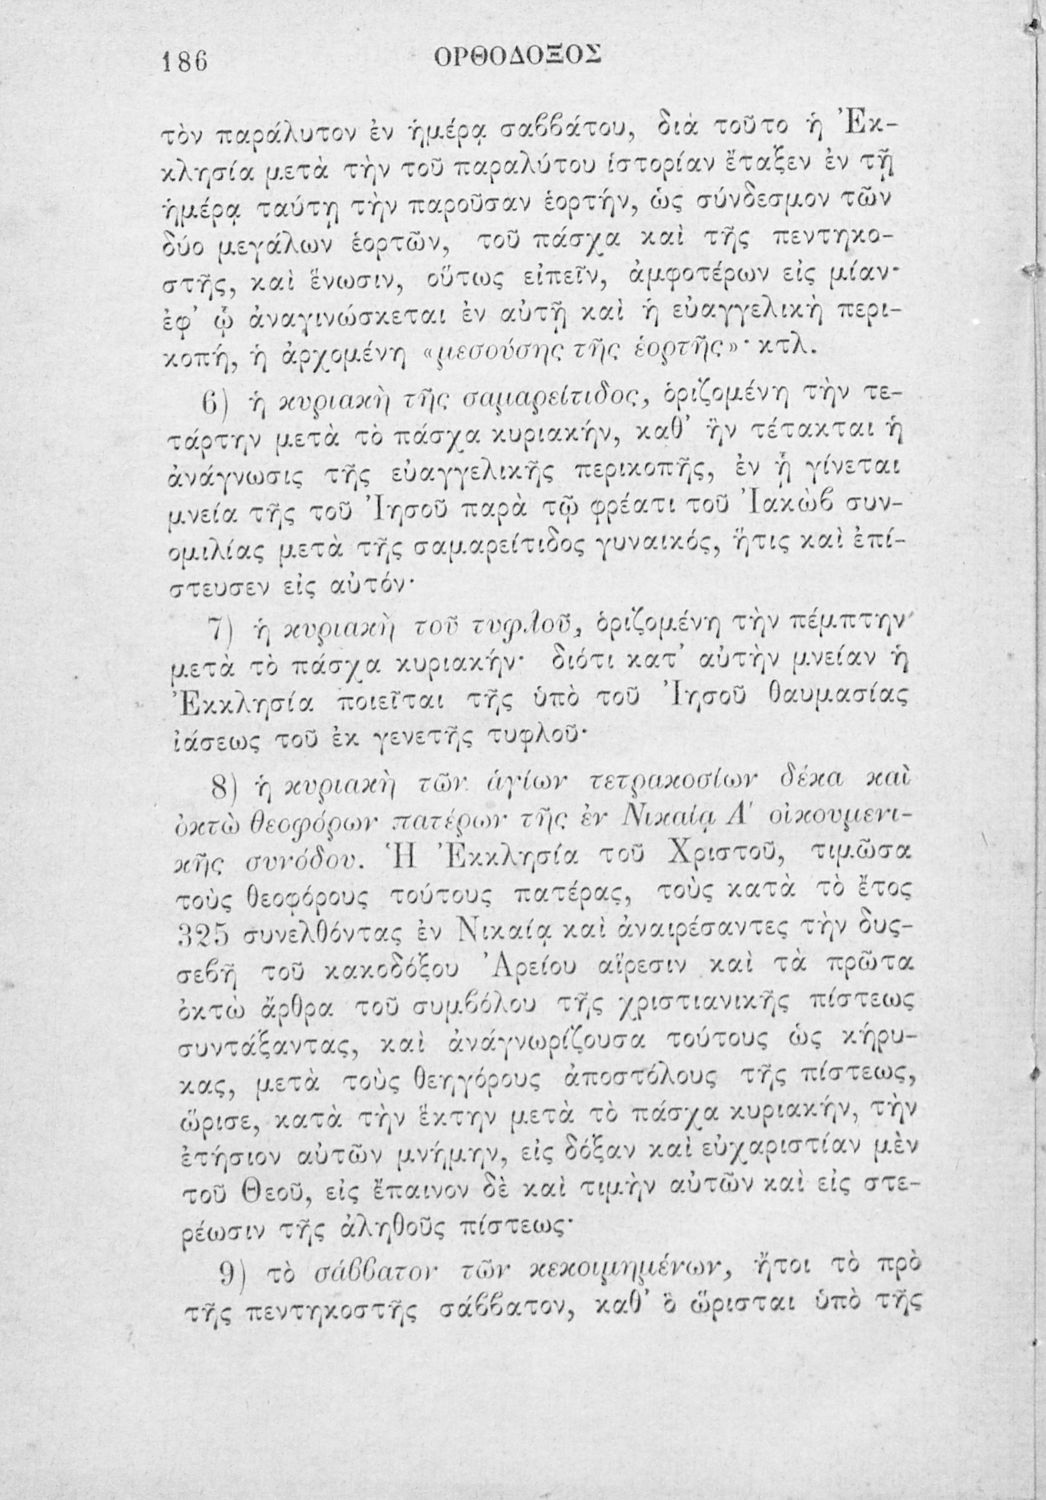 186
ΟΡΘΟΔΟΞΟΣ
τὸν παράλυτον ἐν ἡμέρᾳ σαββάτου, διὰ τοῦτο ἡ Ἐκ-
κλησία μετὰ τὴν τοῦ παραλύτου ἱστορίαν ἔταξεν ἐν τῇ
ἡμέρᾳ ταύτῃ τὴν παροῦσαν ἑορτήν, ὡς σύνδεσμον τῶν
δύο μεγάλων ἑορτῶν, τοῦ πάσχα καὶ τῆς πεντηκο-
στῆς, καὶ ἕνωσιν, οὕτως εἰπεῖν, ἀμφοτέρων εἰς μίαν·
ἐφ’ ᾧ ἀναγινώσκεται ἐν αὐτῇ καὶ ἡ εὐαγγελικὴ περι-
κοπή, ἡ ἀρχομένη «μεσούσης τῆς ἑορτῆς»· κτλ.
6) ἡ κυριακὴ τῆς σαμαρείτιδος, ὁριζομένη τὴν τε-
τάρτην μετὰ τὸ πάσχα κυριακήν, καθ’ ἣν τέτακται ἡ
ἀνάγνωσις τῆς εὐαγγελικῆς περικοπῆς, ἐν ᾗ γίνεται
μνεία τῆς τοῦ Ἰησοῦ παρὰ τῷ φρέατι τοῦ Ἰακὼβ συν-
ομιλίας μετὰ τῆς σαμαρείτιδος γυναικός, ἥτις καὶ ἐπί-
στευσεν εἰς αὐτόν·
7) ἡ κυριακὴ τοῦ τυφλοῦ, ὁριζομένη τὴν πέμπτην
μετὰ τὸ πάσχα κυριακήν· διότι κατ’ αὐτὴν μνείαν ἡ
Ἐκκλησία ποιεῖται τῆς ὑπὸ τοῦ Ἰησοῦ θαυμασίας
ἰάσεως τοῦ ἐκ γενετῆς τυφλοῦ·
8) ἡ κυριακὴ τῶν ἁγίων τετρακοσίων δέκα καὶ
ὀκτὼ θεοφόρων πατέρων τῆς ἐν Νικαίᾳ Α΄ οἰκουμενι-
κῆς συνόδου. Ἡ Ἐκκλησία τοῦ Χριστοῦ, τιμῶσα
τοὺς θεοφόρους τούτους πατέρας, τοὺς κατὰ τὸ ἔτος
325 συνελθόντας ἐν Νικαίᾳ καὶ ἀναιρέσαντες τὴν δυς-
σεβῆ τοῦ κακοδόξου Ἀρείου αἵρεσιν καὶ τὰ πρῶτα
ὀκτὼ ἄρθρα τοῦ συμβόλου τῆς χριστιανικῆς πίστεως
συντάξαντας, καὶ ἀνάγνωρίζουσα τούτους ὡς κήρυ-
κας, μετὰ τοὺς θεηγόρους ἀποστόλους τῆς πίστεως,
ὥρισε, κατὰ τὴν ἕκτην μετὰ τὸ πάσχα κυριακήν, τὴν
ἐτήσιον αὐτῶν μνήμην, εἰς δόξαν καὶ εὐχαριστίαν μὲν
τοῦ Θεοῦ, εἰς ἔπαινον δὲ καὶ τιμὴν αὐτῶν καὶ εἰς στε-
ρέωσιν τῆς ἀληθοῦς πίστεως·
9) τὸ σάββατον τῶν κεκοιμημένων, ἤτοι τὸ πρὸ
τῆς πεντηκοστῆς σάββατον, καθ’ ὃ ὥρισται ὑπὸ τῆς